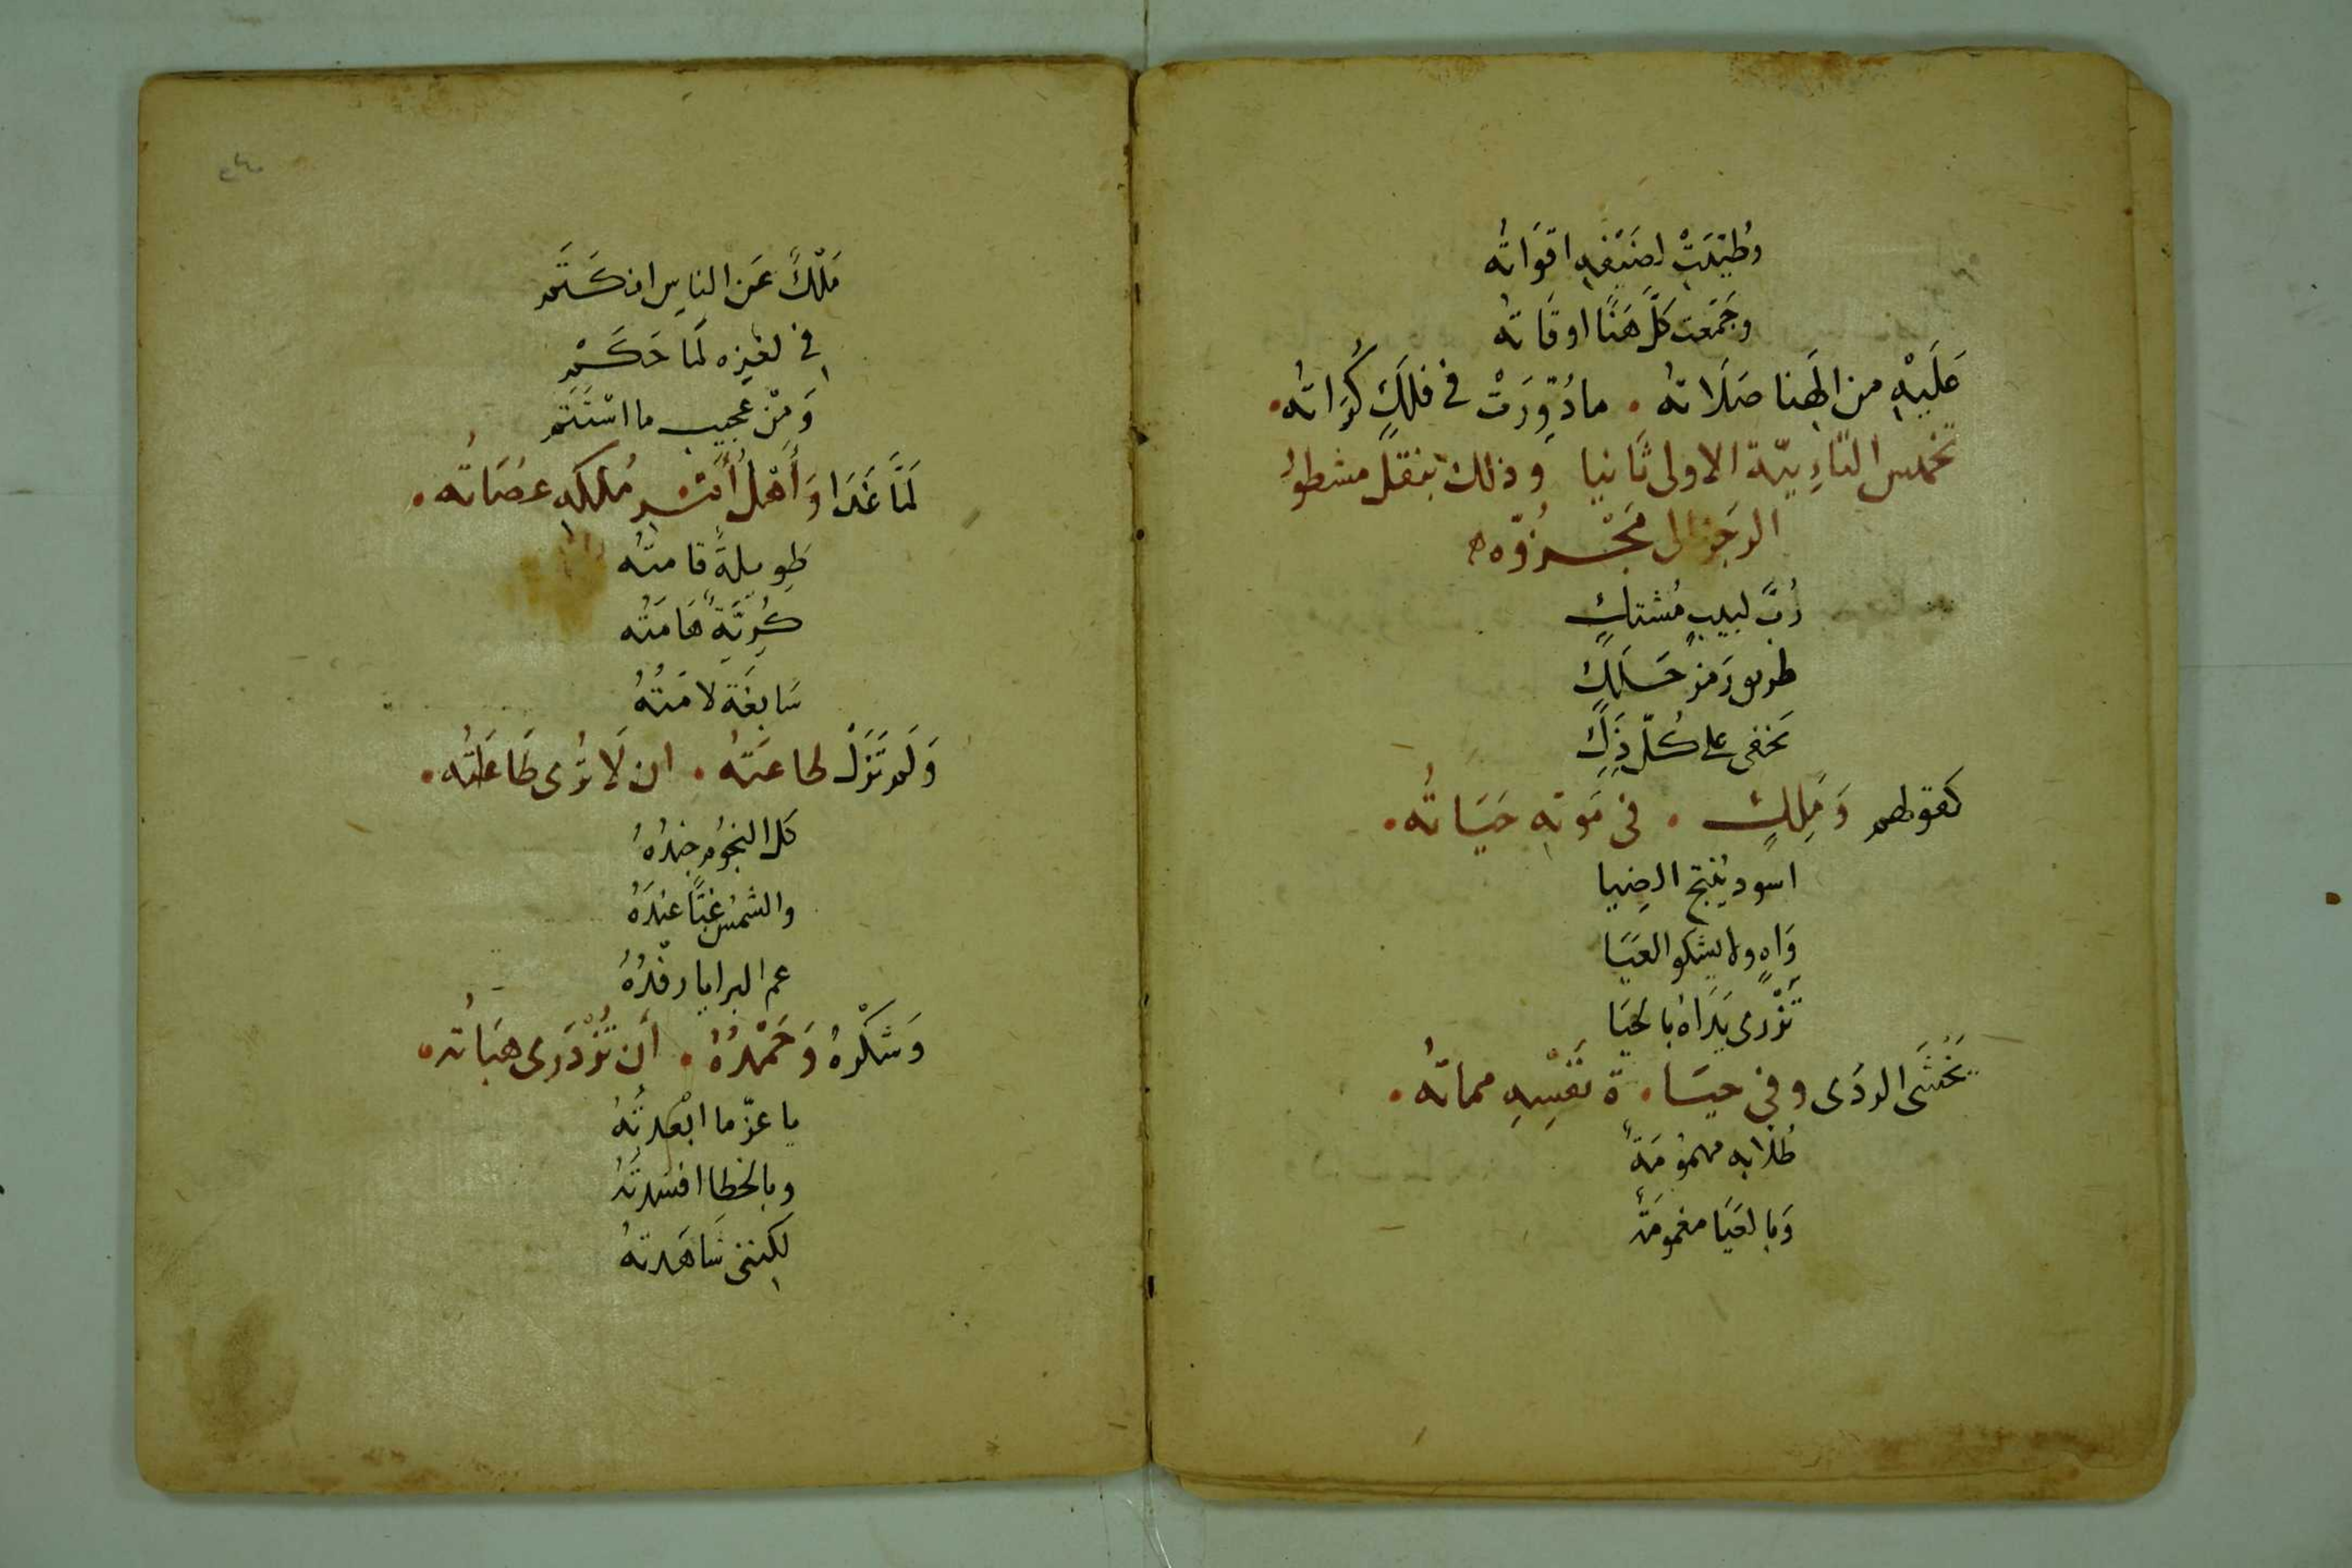 وطُيّبَتْ لضَيْفِهِ اقوَاتُه
وجَمّعت كلَّ هَنًا اوقاتُه
عَلَيْهِ من الٰهِنا صَلَاتهُ . مادُوِّرَتْ في فلَكٍ كُرَاتُه .
تخميس التّاءِيّة الاولى ثانيا وذلك بنقل مشطور
الرجَز الى مَجْزُوّه
رُبَّ لبيبٍ مُشتكٍ
طريق رَمزٍ حَسَلَكٍ
يَخفى على كُلّ ذَكِ
كعقوطهم وَمَلِكٍ . فى مَوتهِ حَيَاتُه .
اسود يُنتج الضِيا
وَاهٍ ولا يشكو العَيَا
تَزْرى يَدَاهُ بالحَيَا
يَخْشَى الردَى وفى حيَا . ة نَفْسِهِ مماتُه .
طُلّابه مهمُومَةٌ
وَبالعَيَا مغمومَة
مَلْكٌ عَن الناسِ انكَتَم
في لغزِه لَمَا حَكَمْ
وَمِنْ عجيبٍ ما اسْتَتَم
لَمَّا غَدَا وَأَهْلُ أُسّ . مُلكهِ عُصَاتُه .
طَوِيلةٌ قامتُه
كُرِيَّةٌ هَامَتُه
سَابِغَة لامَتُهُ
وَلَم تَزَلْ لحاعَتُهُ . ان لَا تُرى طَاعَتُه .
كل النجُوم جندُهُ
والشمسُ غبًّا عندَهُ
عم البرايا رفْدُهُ
وَشكْرهُ وَحَمْدُهُ . أن تُزْدَرى هبَاتُه .
يا عزّ ما ابْعدتُهُ
وبالخطا افسَدتُهُ
لكِننى شَاهَدتهُ